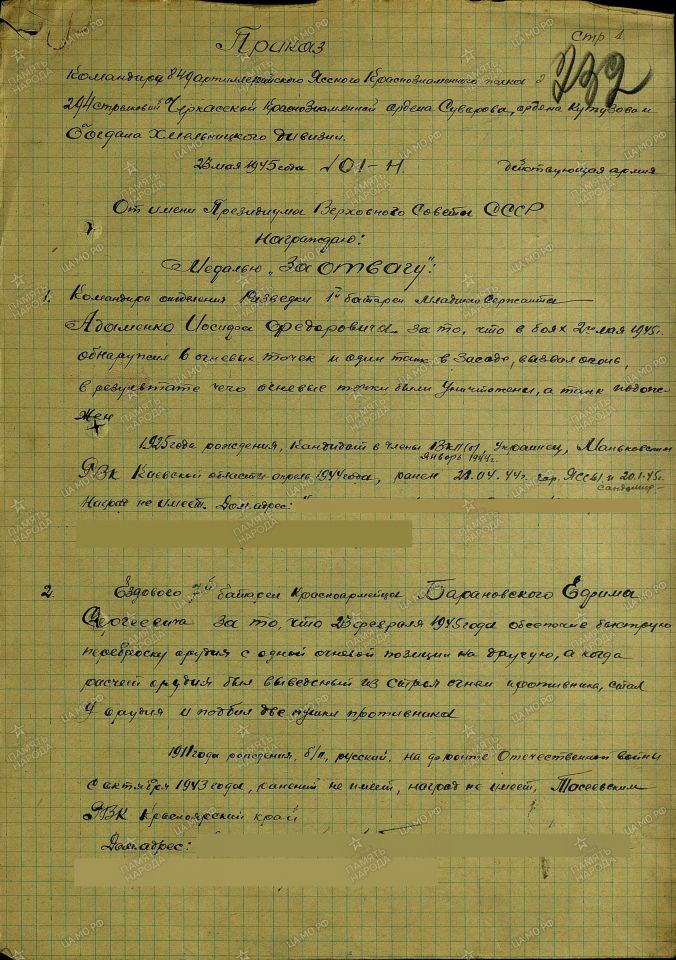 Стр 1
232
Приказ
Командира 849 артиллерийского Ясского Краснознаменного полка
294 стрелковой Черкасской Краснознаменной ордена Суворова, ордена Кутузова и
Богдана Хмельницкого дивизии.
23 мая 1945 года №01-Н действующая армия
От имени Президиума Верховного Совета СССР
Награждаю:
Медалью „За отвагу":
1. Командира отделения Разведки 1й батареи Младшего Сержанта
Адаменко Иосифа Федоровича за то, что в боях 2го мая 1945г.
обнаружил 6 огневых точек и один танк в засаде, вызвал огонь,
в результате чего огневые точки были уничтожены, а танк подож-
жен
1925 года рождения, кандидат в члены ВКП(б) январь 1944г., украинец, Маньковским
РВК Киевской области апрель 1944 года, ранен 28.04.44г. гор. Яссы и 20.1.45г. Сандомир-
Наград не имеет. Дом. адрес:
2. Ездового 7й батареи Красноармейца Барановского Ефрима
Сергеевича за то, что 23 февраля 1945 года обеспечив быструю
переброску орудия с одной огневой позиции на другую, а когда
расчет орудия был выведеный из строя огнем противника, стал
у орудия и подбил две пушки противника
1911 года рождения, б/п, русский, на фронте Отечественной войны
с октября 1943 года, ранений не имеет, наград не имеет, Тасеевским
РВК Красноярский край
Дом. адрес: